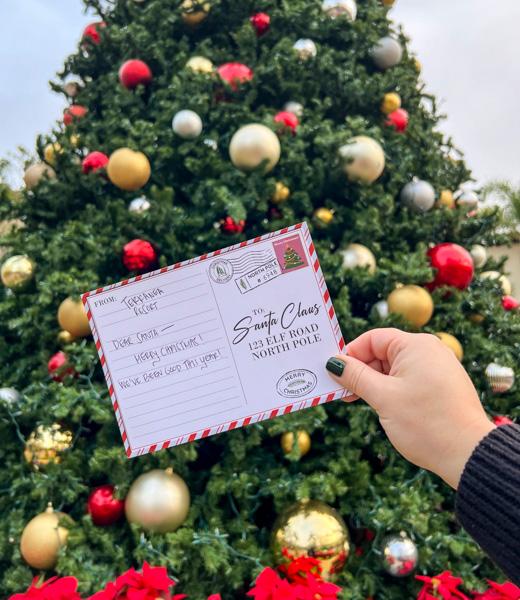 FROM:
TERRANEA
RESORT
DEAR SANTA —
MERRY CHRISTMAS!
WE'VE BEEN GOOD THIS YEAR!
NORTH POLE
TO,
Santa Claus
123 ELF ROAD
NORTH POLE
MERRY
CHRISTMAS